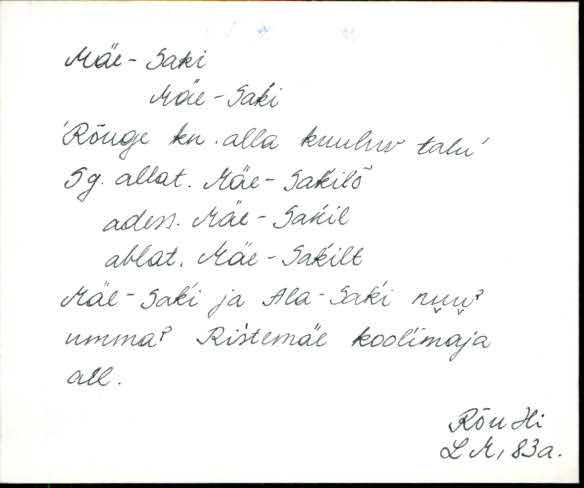 Mäe-Saki
Mäe-Saḱi
'Rõuge kn. alla kuuluv talu'
Sg. allat. Mäe-Saḱilõ
adess. Mäe-Saḱil
ablat. Mäe-Saḱilt
Mäe-Saḱi ja Ala-Saḱi nu̬u̬ʔ
ummaʔ Ristemäe kooĺimaja
all.
Rõu Hi
L M, 83a.